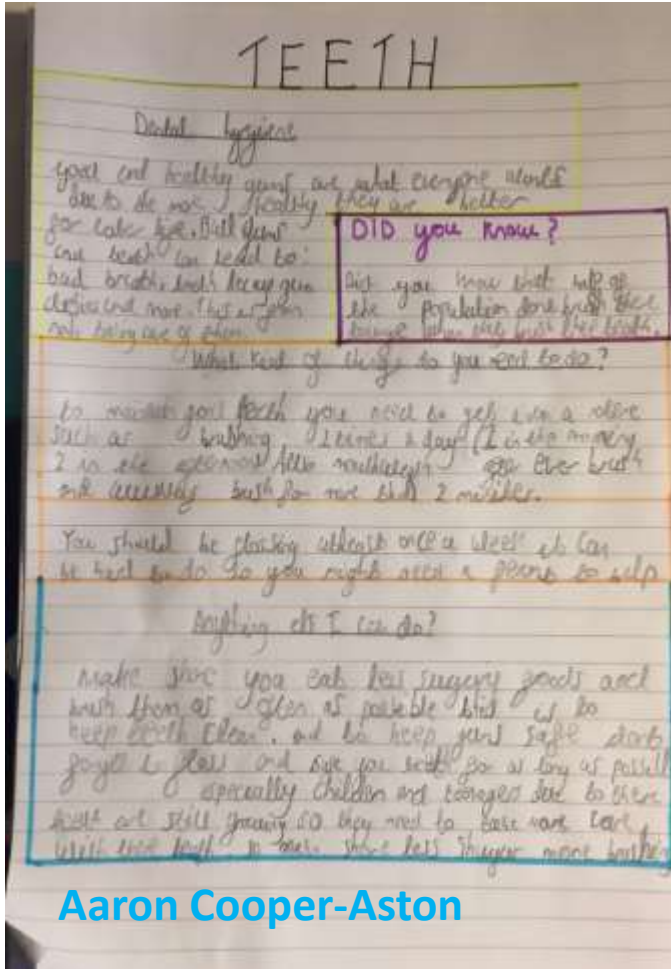 TEETH
Dental hygiene
good and healthy gums are what everyone wants
due to the more healthy they are better
for later life. Bad gums
and teeth can lead to:
bad breath, tooth decay gum
and more. This is from
not being care of them.
DID you know?
Did you know that half of
the population dont brush there
tounge when they brush their teeth.
What kind of things do you need to do?
to maintain good teeth you need to
such as brushing 2 times a day (1 in the morning
in the Also mouthwash ever brush
and brush for more than 2 minutes.
You should be flossing atleast once a week it can
be hard to do so you might need a to help
Anything els I can do?
Make shoe you eat less sugery foods and
brush them as often as possible this is to
keep teeth clean. and to keep gums safe dont
to floss and as long as possible
especially children and teenagers due to there
teeth are still growing so they need to take more care
with there teeth. less shuger more brushing
Aaron Cooper-Aston